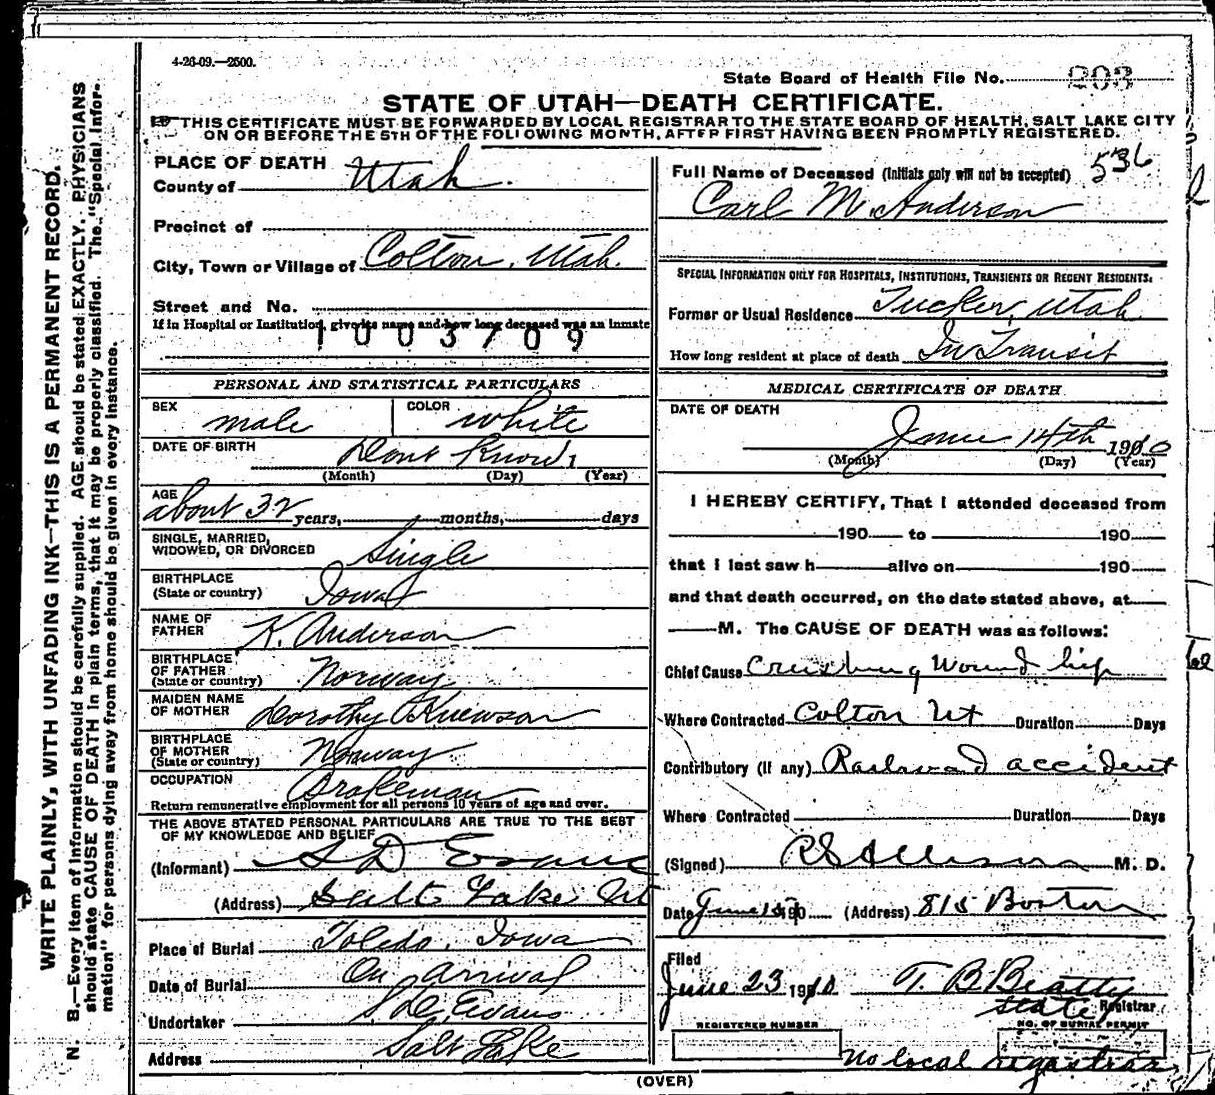 4-26-09.—2500.
State Board of Health File No. 203
STATE OF UTAH—DEATH CERTIFICATE.
THIS CERTIFICATE MUST BE FORWARDED BY LOCAL REGISTRAR TO THE STATE BOARD OF HEALTH, SALT LAKE CITY
ON OR BEFORE THE 5TH OF THE FOLLOWING MONTH, AFTER FIRST HAVING BEEN PROMPTLY REGISTERED.
WRITE PLAINLY, WITH UNFADING INK—THIS IS A PERMANENT RECORD.
N. B.—Every item of information should be carefully supplied. AGE should be stated EXACTLY. PHYSICIANS
should state CAUSE OF DEATH in plain terms, that it may be properly classified. The "Special Infor-
mation" for persons dying away from home should be given in every instance.
PLACE OF DEATH
County of Utah.
Precinct of
City, Town or Village of Colton, Utah.
Street and No.
If in Hospital or Institution, give its name and how long deceased was an inmate
1003709
PERSONAL AND STATISTICAL PARTICULARS
SEX male COLOR white
DATE OF BIRTH Dont Know
(Month) (Day) (Year)
AGE about 32 years, months, days
SINGLE, MARRIED,
WIDOWED, OR DIVORCED Single
BIRTHPLACE
(State or country) Iowa
NAME OF
FATHER K. Anderson
BIRTHPLACE
OF FATHER
(State or country) Norway
MAIDEN NAME
OF MOTHER Dorothy
BIRTHPLACE
OF MOTHER
(State or country) Norway
OCCUPATION Brakeman
Return remunerative employment for all persons 10 years of age and over.
THE ABOVE STATED PERSONAL PARTICULARS ARE TRUE TO THE BEST
OF MY KNOWLEDGE AND BELIEF
(Informant) S D Evans
(Address) Salt Lake Ut
Place of Burial Toledo, Iowa
Date of Burial On arrival
Undertaker S. D. Evans
Address Salt Lake
536
Full Name of Deceased (Initials only will not be accepted)
Carl M. Anderson
SPECIAL INFORMATION ONLY FOR HOSPITALS, INSTITUTIONS, TRANSIENTS OR RECENT RESIDENTS.
Former or Usual Residence Tucker, Utah
How long resident at place of death In Transit
MEDICAL CERTIFICATE OF DEATH
DATE OF DEATH
June 14th 1910
(Month) (Day) (Year)
I HEREBY CERTIFY, That I attended deceased from
190 to 190
that I last saw h alive on 190
and that death occurred, on the date stated above, at
M. The CAUSE OF DEATH was as follows:
Chief Cause Crushing Wound hip
Where Contracted Colton Ut Duration Days
Contributory (if any) Railroad accident
Where Contracted Duration Days
(Signed) R S Allison M. D.
Date June 15 190 (Address) 815 Boston
Filed
June 23 1910 T. B. Beatty
State Registrar
REGISTERED NUMBER
NO. OF BURIAL PERMIT
No local registrar
(OVER)